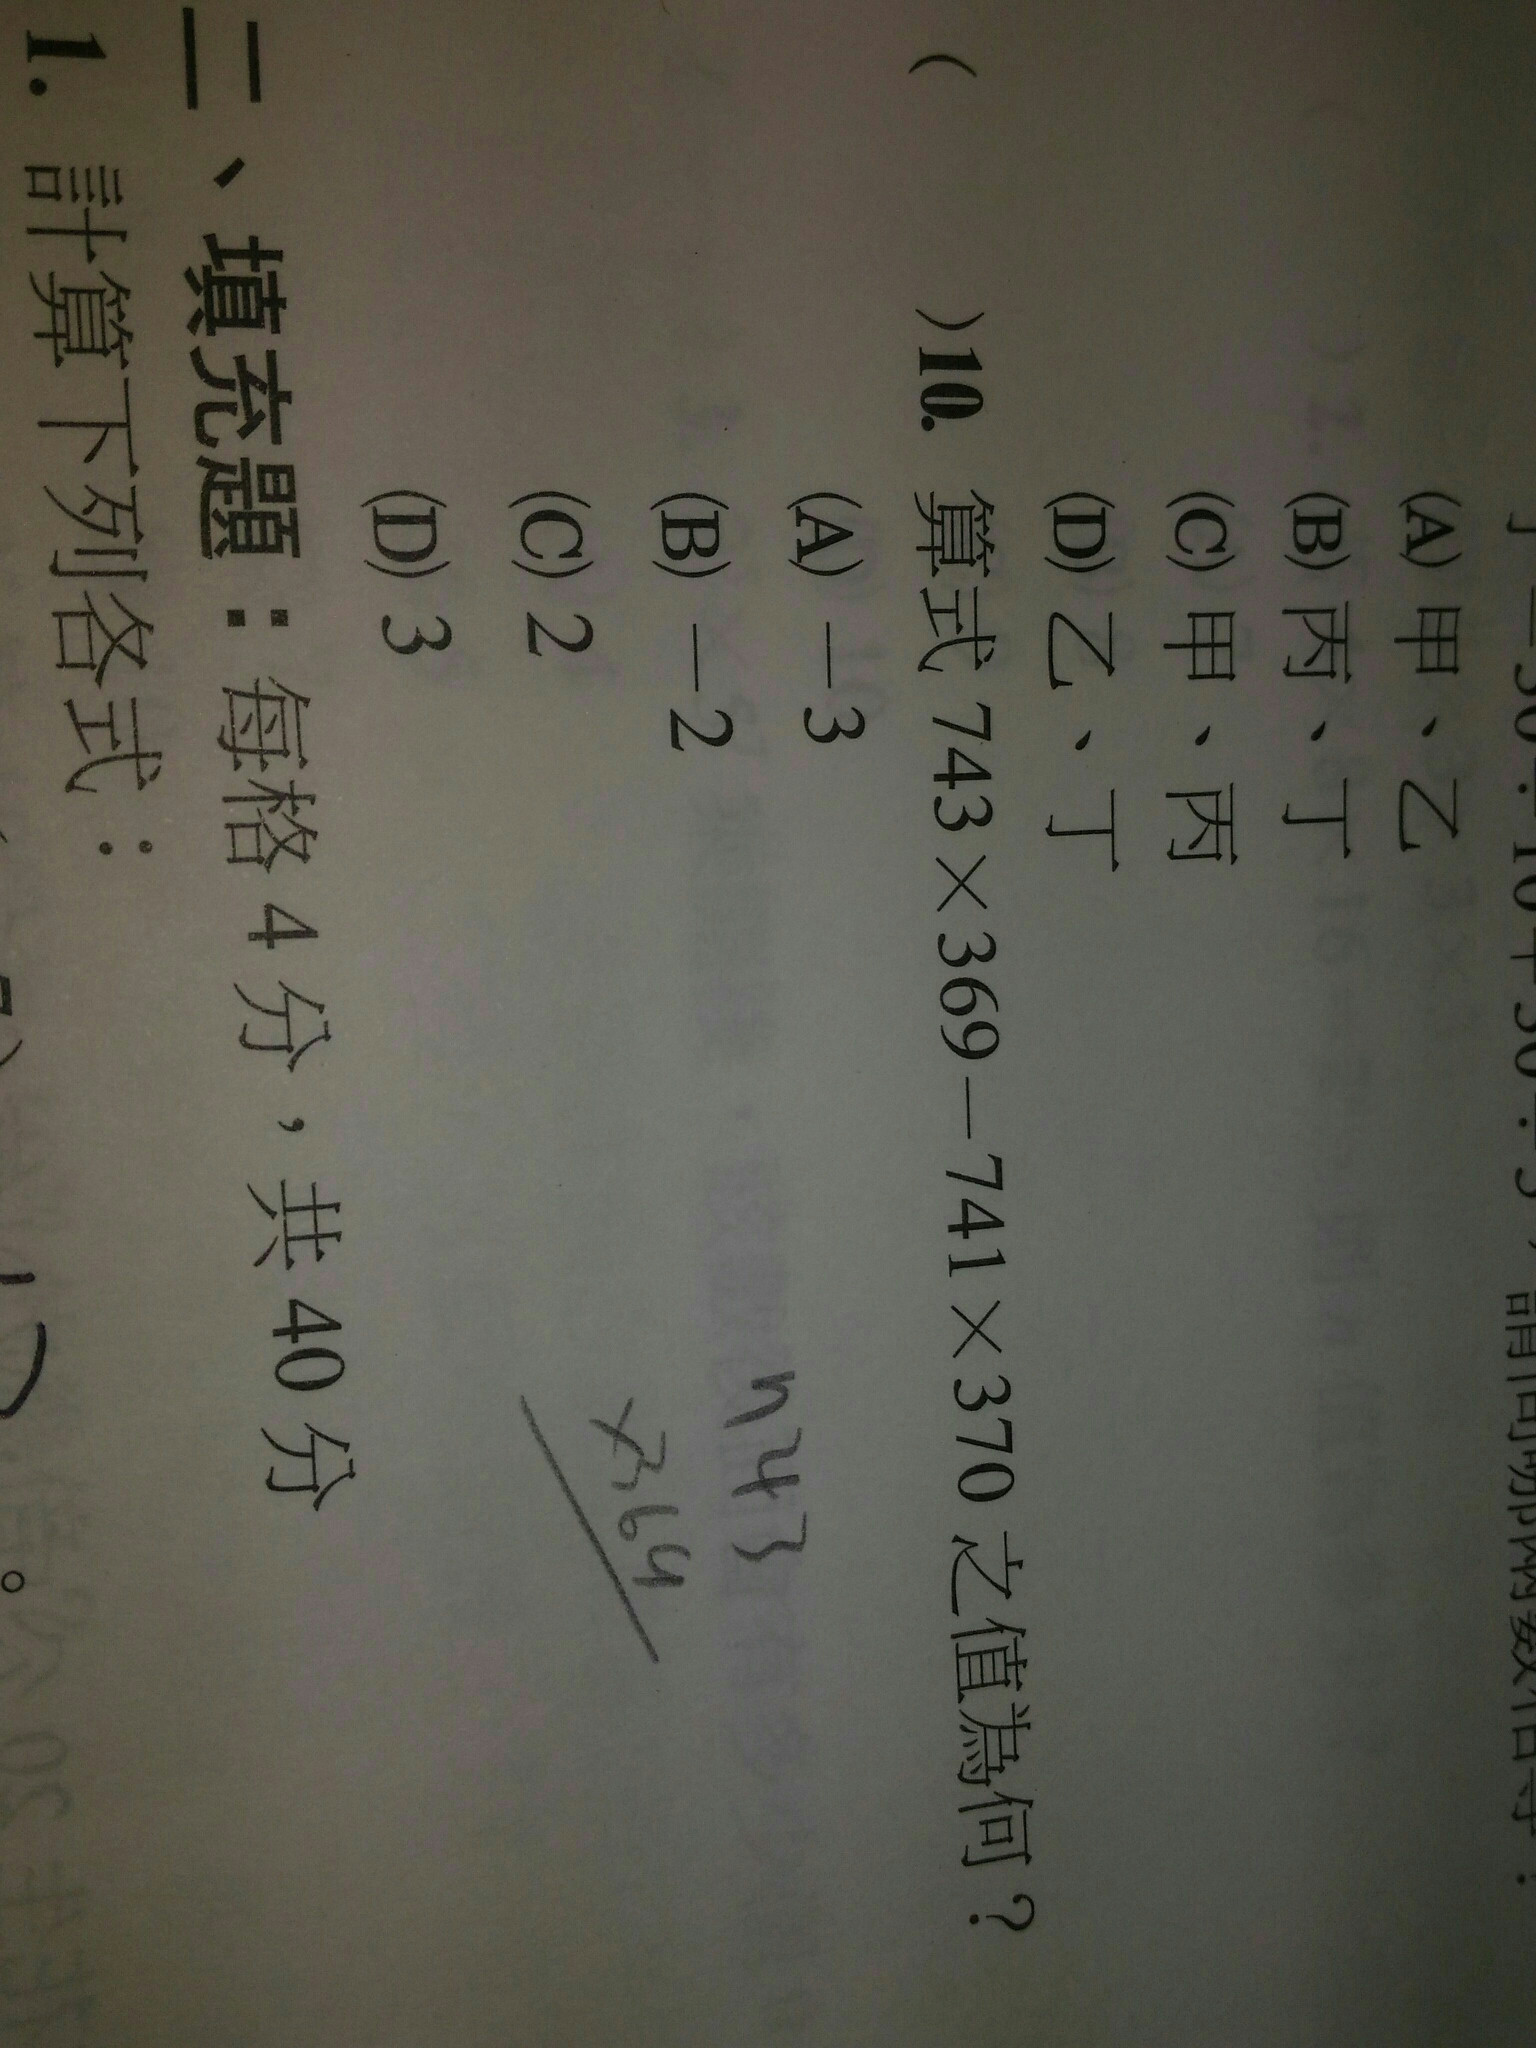 (A) 甲、乙
(B) 丙、丁
(C) 甲、丙
(D) 乙、丁
(　　)10. 算式 743×369－741×370 之值為何？
(A) －3
(B) －2
(C) 2
(D) 3
743
×369
二、填充題：每格 4 分，共 40 分
1. 計算下列各式：